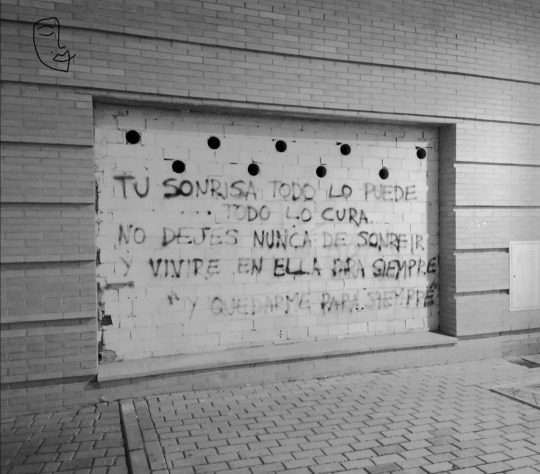 TU SONRISA TODO LO PUEDE
... TODO LO CURA.
NO DEJES NUNCA DE SONREIR
Y VIVIRE EN ELLA PARA SIEMPRE
"Y QUEDARME PARA SIEMPRE"